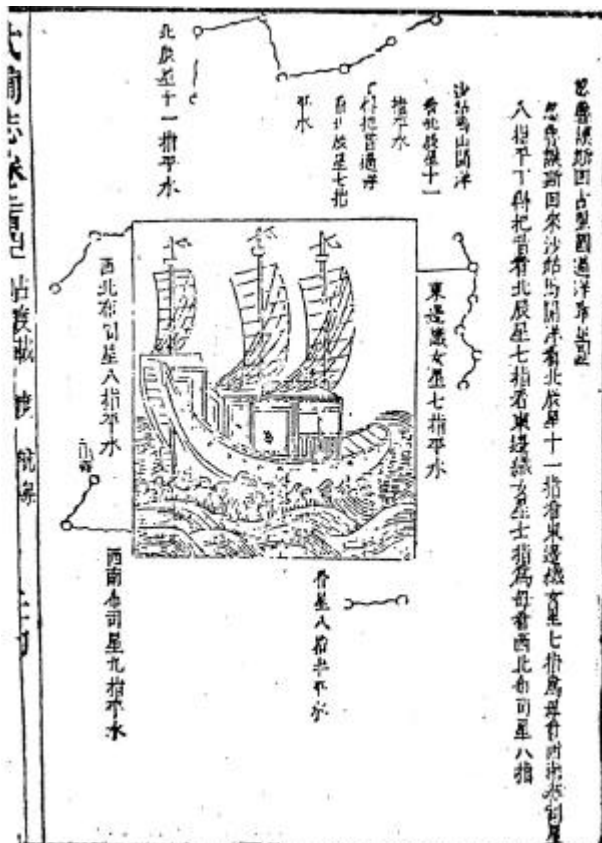 忽魯謨斯回古里國過洋牽星圖
忽魯謨斯回來沙姑馬開洋看北辰星十一指看東邊織女星七指為母看西北布司星
八指平丁得把昔看北辰星七指看東邊織女星七指為母看西北布司星八指
沙姑馬山開洋
看北辰星十一
指平水
丁得把昔過洋
看北辰星七指
平水
北辰星十一指平水
東邊織女星七指平水
西北布司星八指平水
骨星八指半平水
西南布司星九指平水
武備志卷 占度載 度 航海